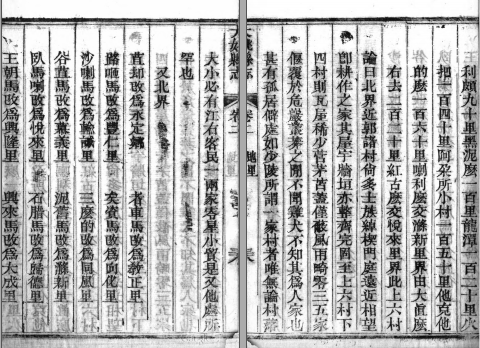 利頗九十里黑泥麼一百一里龍潭一百二十
把一百四十里阿朶所小村一百五十里他克他
的麼一百六十里喇利麼交滌新里界由大眞麼
右去二百二十里紅古麼交悅來里界此上六村
論曰北界近郭諸村倘多士族綽楔門庭遠近相望
卽耕作之家其屋宇牆垣亦整齊完固至上六村下
四村則瓦屋稀少苫茅苫蓋僅蔽風雨畸零三五家
偃覆於危巖叢茅之間不聞雞犬不知其爲人家也
甚有孤居僻處如少陵所謂一家村者唯無論村落
大姚縣志 卷二 地里
大小必有江右客民一兩家零星小貿是又他處所
罕也
四又北界
苴却改爲永定鄉 者車馬改爲敎正里
路咂馬改爲豐仁里 矣資馬改爲向化里
沙喇馬改爲輪誠里 三麼的改爲同風里
谷苴馬改爲慕義里 泥舊馬改爲滌新里
臥馬喇改爲悅來里 石腊馬改爲歸德里
王朝馬改爲興隆里 興來馬改爲大成里